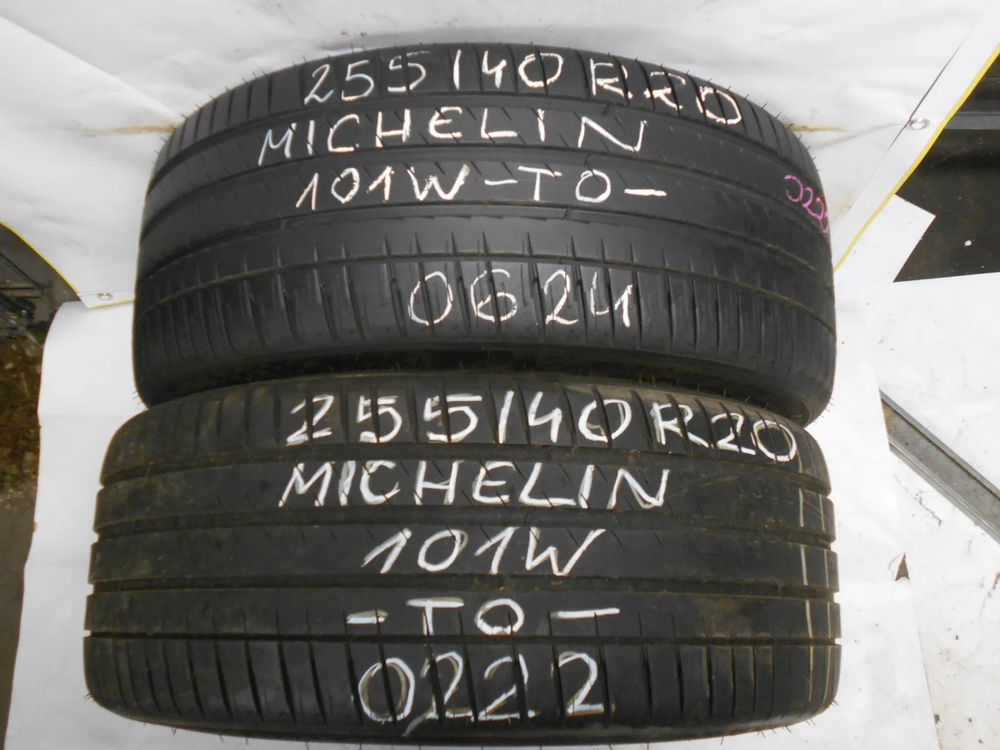 255/40 R20
MICHELIN
101W-TO-
0624
255/40 R20
MICHELIN
101W
-TO-
0222